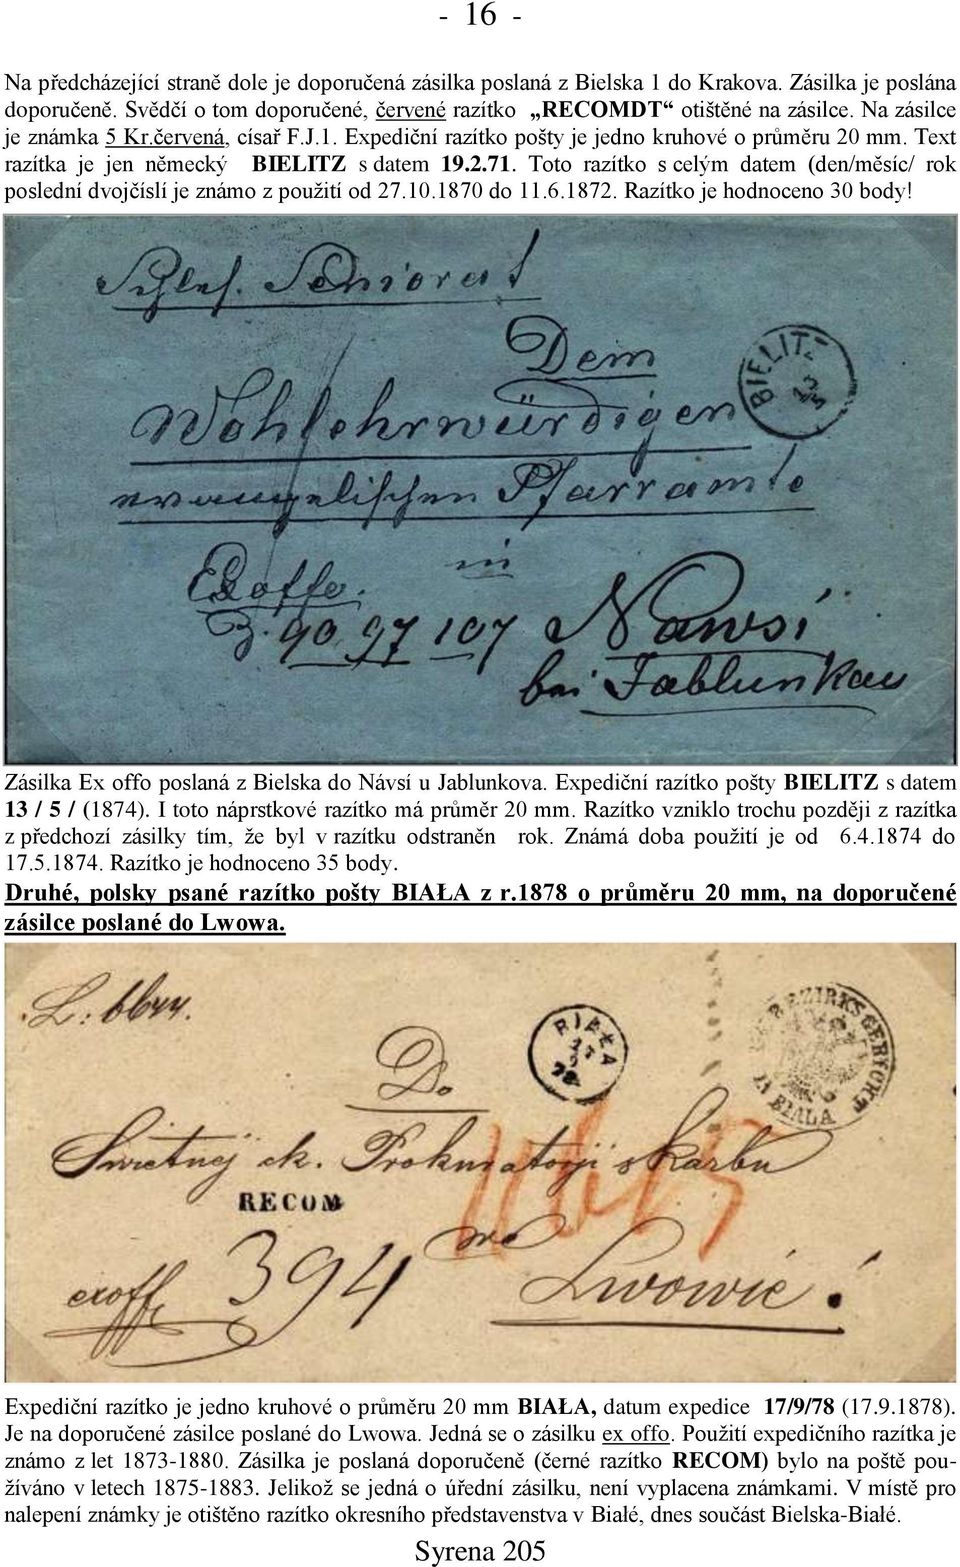 - 16 -
Na předcházející straně dole je doporučená zásilka poslaná z Bielska 1 do Krakova. Zásilka je poslána
doporučeně. Svědčí o tom doporučené, červené razítko „RECOMDT“ otištěné na zásilce. Na zásilce
je známka 5 Kr.červená, císař F.J.1. Expediční razítko pošty je jedno kruhové o průměru 20 mm. Text
razítka je jen německý BIELITZ s datem 19.2.71. Toto razítko s celým datem (den/měsíc/ rok
poslední dvojčíslí je známo z použití od 27.10.1870 do 11.6.1872. Razítko je hodnoceno 30 body!
Schles. Seniorat
Dem
BIELITZ
13
5
Wohlehrwürdigen
evangelischen Pfarramte
Exoffo. in
Z. 90 97 107 Nawsí
bei Jablunkau
Zásilka Ex offo poslaná z Bielska do Návsí u Jablunkova. Expediční razítko pošty BIELITZ s datem
13 / 5 / (1874). I toto náprstkové razítko má průměr 20 mm. Razítko vzniklo trochu později z razítka
z předchozí zásilky tím, že byl v razítku odstraněn rok. Známá doba použití je od 6.4.1874 do
17.5.1874. Razítko je hodnoceno 35 body.
Druhé, polsky psané razítko pošty BIAŁA z r.1878 o průměru 20 mm, na doporučené
zásilce poslané do Lwowa.
L: 6644.
BIAŁA
17
9
78
BEZIRKSGERICHT
IN BIALA
Do
Świetnej ck. Prokuratorji skarbu
RECOM
394 we
exoff Lwowie!
Expediční razítko je jedno kruhové o průměru 20 mm BIAŁA, datum expedice 17/9/78 (17.9.1878).
Je na doporučené zásilce poslané do Lwowa. Jedná se o zásilku ex offo. Použití expedičního razítka je
známo z let 1873-1880. Zásilka je poslaná doporučeně (černé razítko RECOM) bylo na poště pou-
žíváno v letech 1875-1883. Jelikož se jedná o úřední zásilku, není vyplacena známkami. V místě pro
nalepení známky je otištěno razítko okresního představenstva v Białé, dnes součást Bielska-Białé.
Syrena 205